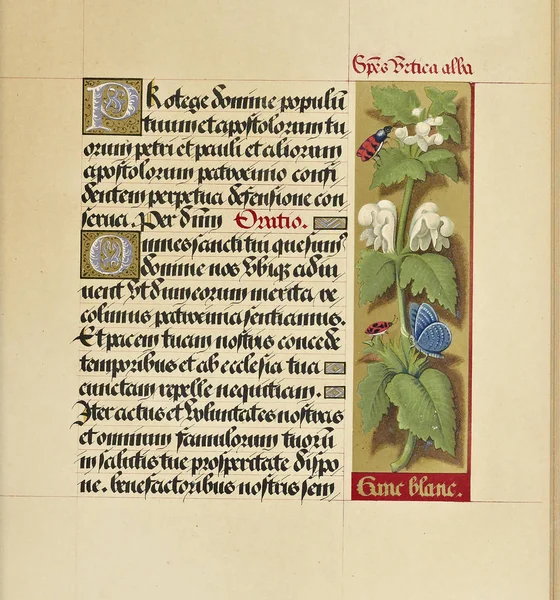 Spēs Vrtica alba
Protege domine populū
tuum et apostolorum tu
orum petri et pauli et aliorum
apostolorum patrocinio confi
dentem perpetua defensione con
serua. Per dn̄m Oratio.
Omnes sancti tui quesum9
domine nos vbiqȝ adiu
uent vt dum eorum merita re
colimus patrocinia sentiamus.
Et pacem tuam nostris concede
temporibus et ab ecclesia tua
cunctam repelle nequitiam.
Iter actus et voluntates nostras
et omnium famulorum tuorū
in salutis tue prosperitate dispo
ne. benefactoribus nostris sem
blanc.